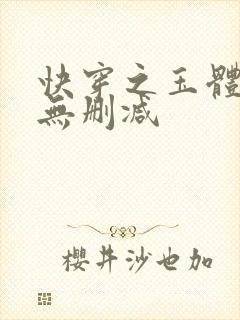 快穿之玉體
無刪減
櫻井沙也加